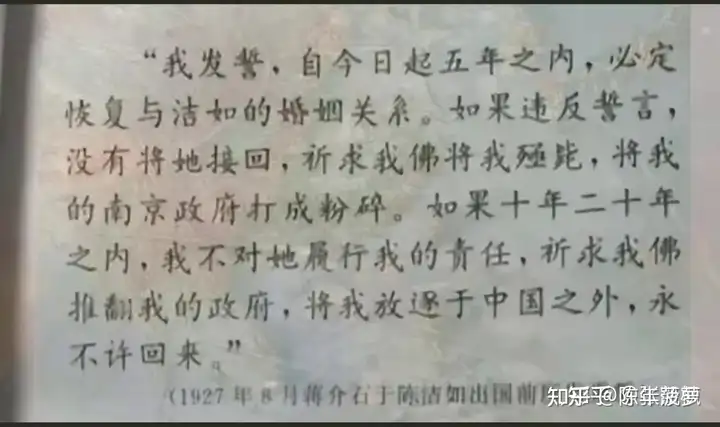 “我发誓，自今日起五年之内，必定
恢复与洁如的婚姻关系。如果违反誓言，
没有将她接回，祈求我佛将我殛毙，将我
的南京政府打成粉碎。如果十年二十年
之内，我不对她履行我的责任，祈求我佛
推翻我的政府，将我放逐于中国之外，永
不许回来。”
(1927年8月蒋介石于陈洁如出国前
知乎 @陈张菠萝